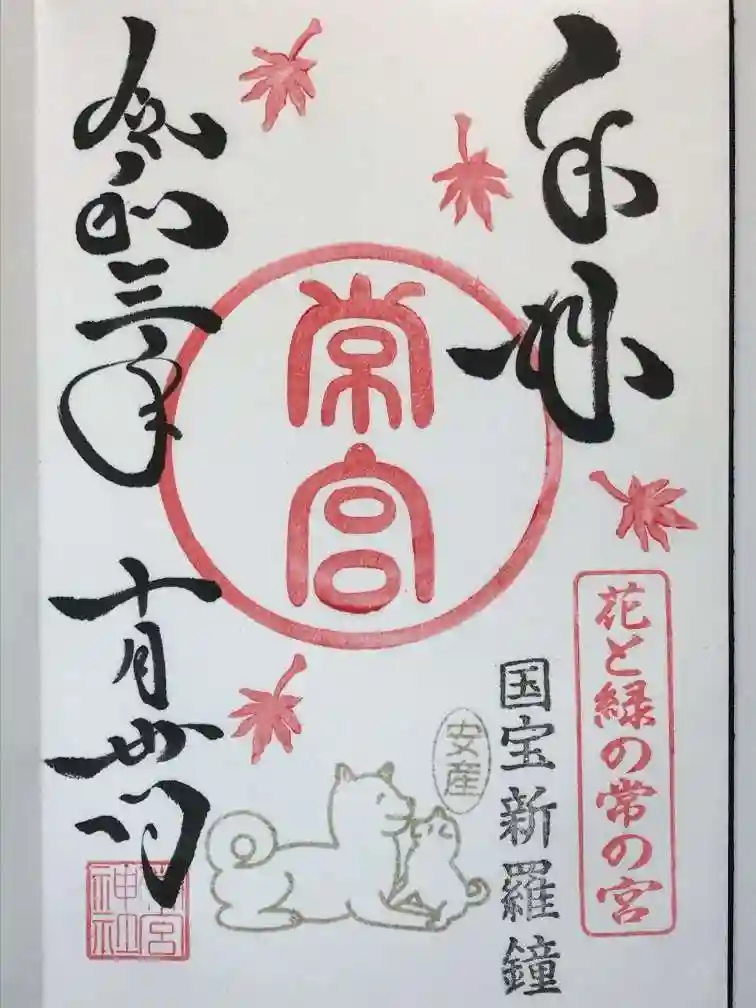 奉拝
花と緑の常の宮
国宝新羅鐘
安産
常宮
令和三年
十月卅日
常宮神社